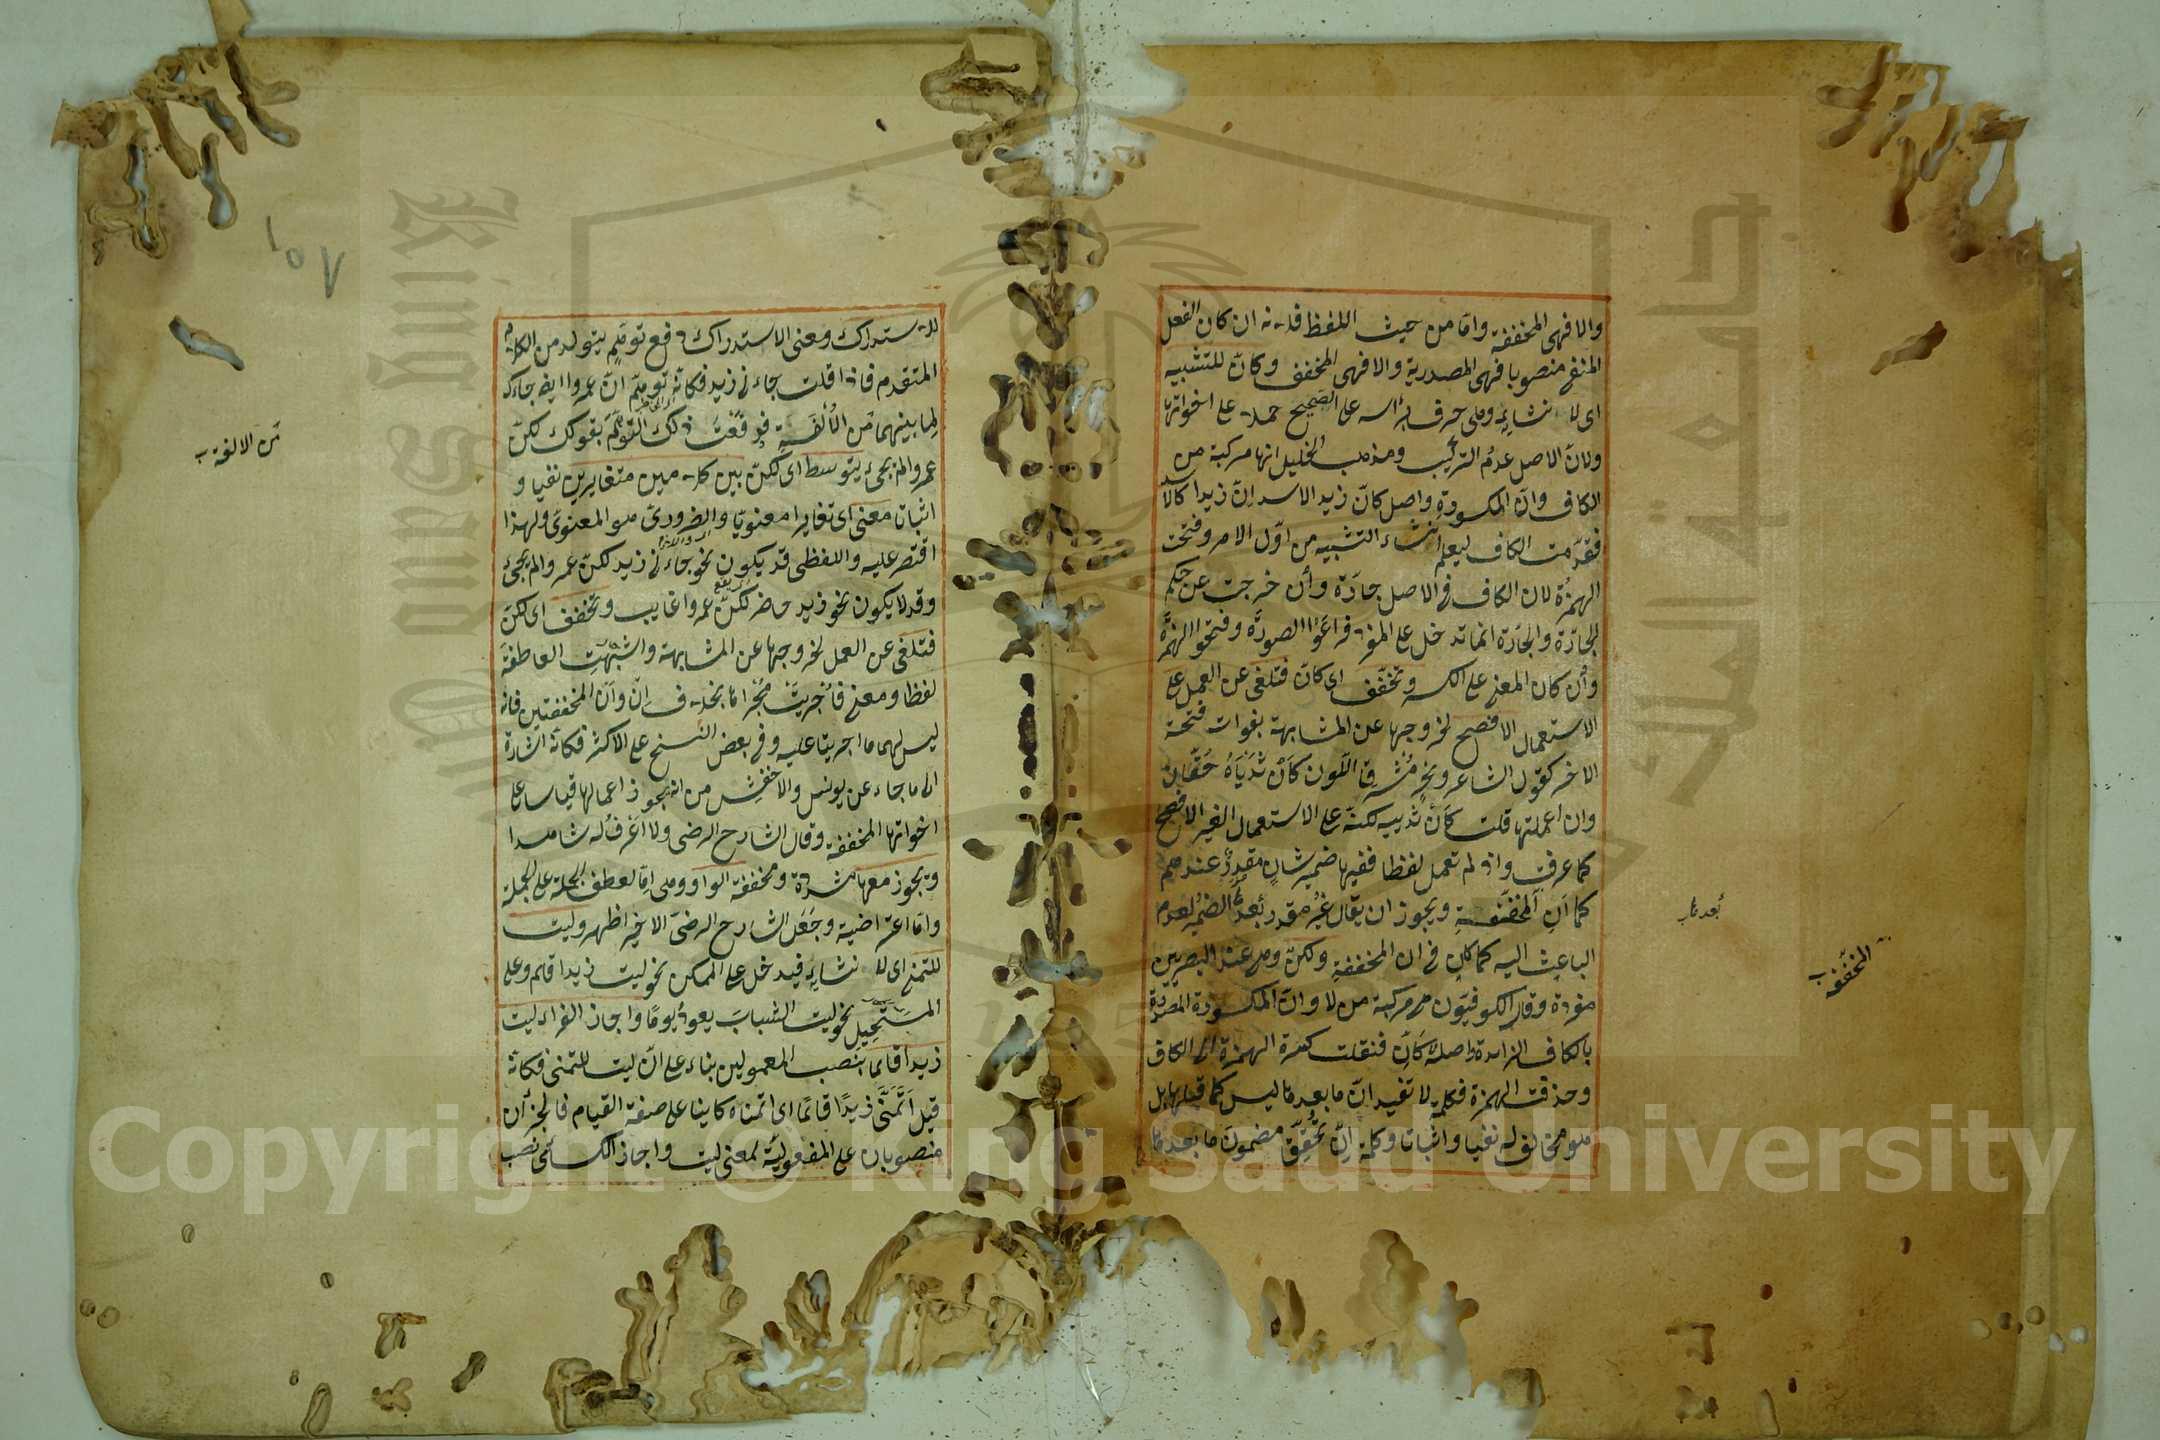 والا فهى المخففة واما من حيث اللفظ فلانه ان كان الفعل
المنفى منصوبا فهى المصدرية والا فهى المخفف وكانّ للتشبيه
اى لانشايه وهى حرف برأسه على الصحيح حملا على اخواتها
ولان الاصل عدم التركيب ومذهب الخليل انها مركبة من
الكاف وانّ المكسورة واصل كانّ زيد الاسد انّ زيدا كالاسد
فقدّمت الكاف ليعلم انشاء التشبيه من اوّل الامر وفتحت
الهمزة لان الكاف فى الاصل جارّة وأن خرجت عن حكم
الجارّة والجارّة انما تدخل على المفرد فراعوا الصورة وفتحوا الهمزة
وأن كان المعنى على الكسر وتخفّف اى كانّ فتلغى عن العمل على
الاستعمال الافصح لخروجها عن المشابهة بفوات فتحة
الاخر كقول الشاعر ونحرٍ مُشرقِ اللون كأن ثدياه حقّان
وان اعملتها قلت كأن ثدييه لكنّه على الاستعمال الغير الافصح
كما عرفت واذا لم تعمل لفظا ففيها ضمير شان مقدر عندهم
كما فى أن المخففة ويجوز ان يقال غير مقدر بعدها الضمير لعدم
الباعث اليه كما كان فى ان المخففة ولكنّ وهى عند البصريين
مفردة وقال الكوفيون هى مركبة من لا وانّ المكسورة المصدرة
بالكاف الزايدة واصله لاكأنّ فنقلت كسرة الهمزة الى الكاف
وحذفت الهمزة فكلمة لا تفيد انّ ما بعدها ليس كما قبلها بل
هو مخالف له نفيا واثباتا وكلمة إنّ تحقّق مضمون ما بعدها
بعدها
المخففة
للاستدراك ومعنى الاستدراك دفع توهّم يتولد من الكلام
المتقدم فاذا قلت جاءنى زيد فكانّه توهّم انّ عمروا ايضا جاءك
لما بينهما من الألفة فرفعت ذلك التوهّم بقولك لكنّ
عمروا لم يجئ يتوسط اى لكنّ بين كلامين متغايرين نفيا و
اثباتا معنى اى تغايرا معنويّا والضرورىّ هو المعنوى ولهذا
اقتصر عليه واللفظى قد يكون نحو جاءنى زيد لكنّ عمروا لم يجئ
وقد لا يكون نحو زيد حاضر لكنّ عمروا غايب وتخفف اى لكنّ
فتلغى عن العمل لخروجها عن المشابهة واشبهت العاطفة
لفظا ومعنى فأجريت مجراها بخلاف إنّ وأنّ المخففتين فانه
ليس لهما ما اجريتا عليه وفى بعض النسخ على الاكثر فكانّه اشارة
الى ما جاء عن يونس والاخفش من انه يجوز اعمالها قياسا على
اخواتها المخففة وقال الشارح الرضى ولا اعرف له شاهدا
ويجوز معها مشددة ومخففة الواو وهى امّا لعطف الجملة على الجملة
واما اعتراضية وجعل الشارح الرضىّ الاخير اظهر وليت
للتمنى اى لانشايه فيدخل على الممكن نحو ليت زيدا قايم وعلى
المستحيل نحو ليت الشباب يعود يوما واجاز الفراء ليت
زيدا قايما بنصب المعمولين بناء على انّ ليت للتمنى فكانّه
قيل أتمنّى زيدًا قائمًا اى اتمناه كاينا على صفة القيام فالجزءان
منصوبان على المفعوليّة لمعنى ليت واجاز الكسائى نصب
من الالفة
١٥٧
Copyright © King Saud University
King Saud University
جامعة الملك سعود
1957